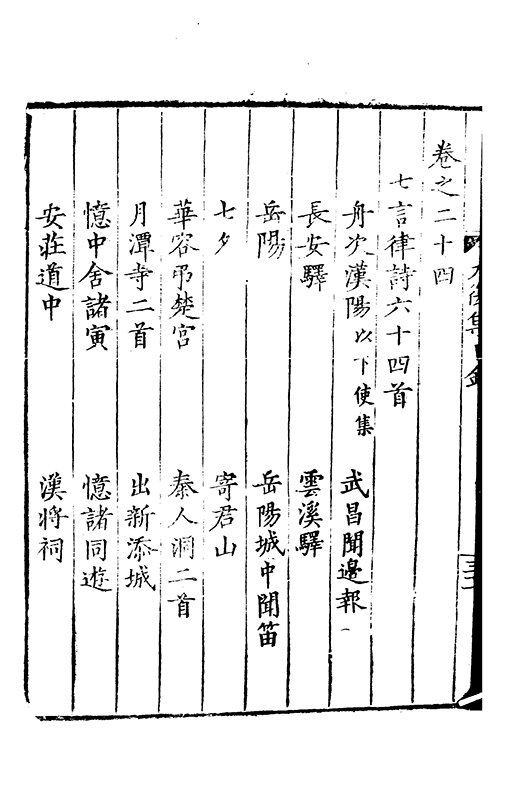 卷之二十四
七言律詩六十四首
舟次漢陽以下使集 武昌聞邊報
長安驛 雲溪驛
岳陽 岳陽城中聞笛
七夕 寄君山
華容弔楚宮 秦人洞二首
月潭寺二首 出新添城
憶中舍諸寅 憶諸同遊
安莊道中 漢將祠